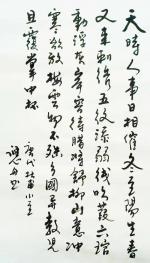 天時人事日相催冬至陽生春
又来刺绣五纹添弱线吹葭六琯
動浮灰岸容待腊將舒柳山意冲
寒欲放梅雲物不殊乡國異教児
且覆掌中杯
唐代杜甫小至